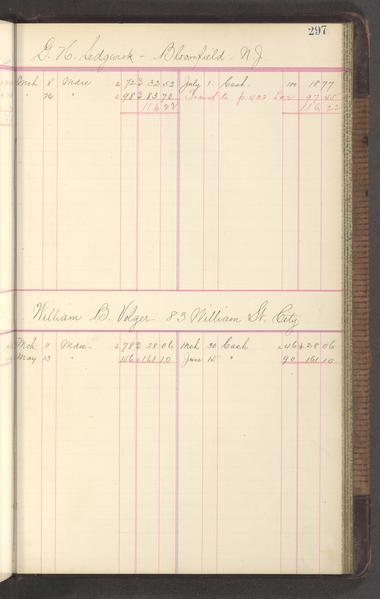 297
G. H. Sedgwick - Bloomfield - N J
Mch 8 Mdse 272 32 52 July 1 Cash 18 77
" 26 " 298 83 70 Transf to p 402 97 45
116 22 116 22
William B. Volger 83 William St. City
Mch 11 Mdse 278 28 06 Mch 30 Cash 264 28 06
May 13 " 156 161 10 Jun 15 " 90 161 10